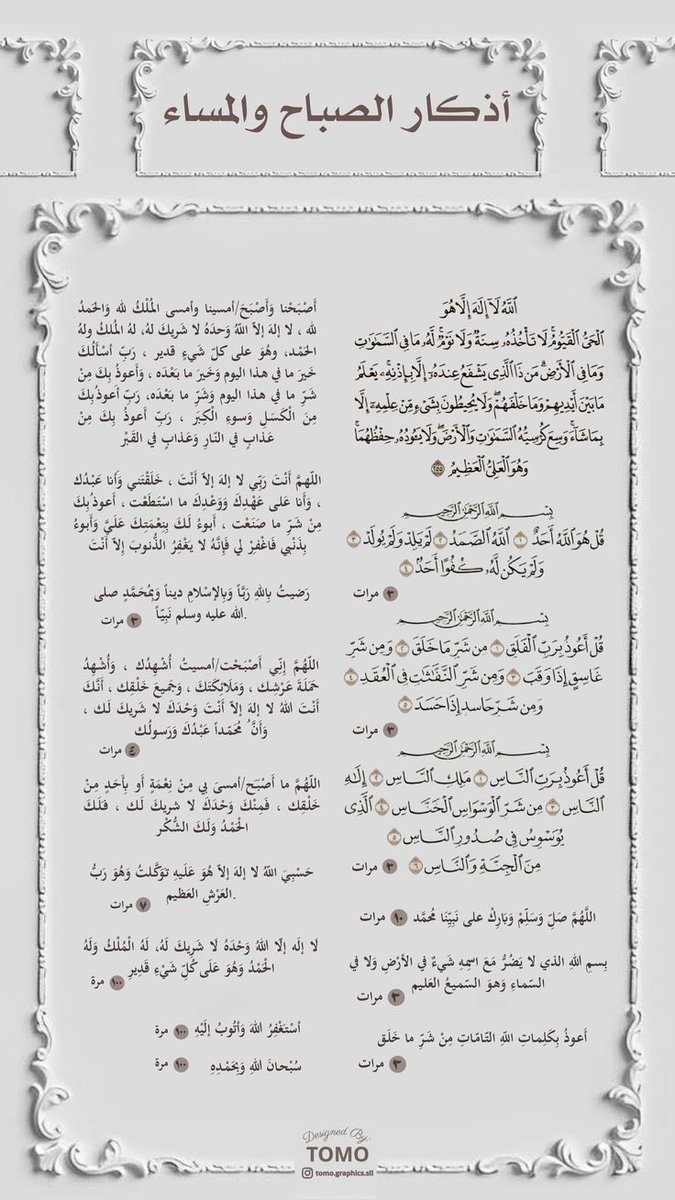 أذكار الصباح والمساء
ٱللَّهُ لَآ إِلَٰهَ إِلَّا هُوَ
ٱلْحَىُّ ٱلْقَيُّومُ ۚ لَا تَأْخُذُهُۥ سِنَةٌ وَلَا نَوْمٌ ۚ لَّهُۥ مَا فِى ٱلسَّمَٰوَٰتِ
وَمَا فِى ٱلْأَرْضِ ۗ مَن ذَا ٱلَّذِى يَشْفَعُ عِندَهُۥٓ إِلَّا بِإِذْنِهِۦ ۚ يَعْلَمُ
مَا بَيْنَ أَيْدِيهِمْ وَمَا خَلْفَهُمْ ۖ وَلَا يُحِيطُونَ بِشَىْءٍ مِّنْ عِلْمِهِۦٓ إِلَّا
بِمَا شَآءَ ۚ وَسِعَ كُرْسِيُّهُ ٱلسَّمَٰوَٰتِ وَٱلْأَرْضَ ۖ وَلَا يَـُٔودُهُۥ حِفْظُهُمَا ۚ
وَهُوَ ٱلْعَلِىُّ ٱلْعَظِيمُ ٢٥٥
بِسْمِ ٱللَّهِ ٱلرَّحْمَٰنِ ٱلرَّحِيمِ
قُلْ هُوَ ٱللَّهُ أَحَدٌ ١ ٱللَّهُ ٱلصَّمَدُ ٢ لَمْ يَلِدْ وَلَمْ يُولَدْ ٣
وَلَمْ يَكُن لَّهُۥ كُفُوًا أَحَدٌۢ ٤
٣ مرات
بِسْمِ ٱللَّهِ ٱلرَّحْمَٰنِ ٱلرَّحِيمِ
قُلْ أَعُوذُ بِرَبِّ ٱلْفَلَقِ ١ مِن شَرِّ مَا خَلَقَ ٢ وَمِن شَرِّ
غَاسِقٍ إِذَا وَقَبَ ٣ وَمِن شَرِّ ٱلنَّفَّٰثَٰتِ فِى ٱلْعُقَدِ ٤
وَمِن شَرِّ حَاسِدٍ إِذَا حَسَدَ ٥
٣ مرات
بِسْمِ ٱللَّهِ ٱلرَّحْمَٰنِ ٱلرَّحِيمِ
قُلْ أَعُوذُ بِرَبِّ ٱلنَّاسِ ١ مَلِكِ ٱلنَّاسِ ٢ إِلَٰهِ
ٱلنَّاسِ ٣ مِن شَرِّ ٱلْوَسْوَاسِ ٱلْخَنَّاسِ ٤ ٱلَّذِى
يُوَسْوِسُ فِى صُدُورِ ٱلنَّاسِ ٥
مِنَ ٱلْجِنَّةِ وَٱلنَّاسِ ٦ ٣ مرات
اللَّهُمَّ صَلِّ وَسَلِّمْ وَبَارِكْ على نَبِيِّنَا مُحمَّد ١٠ مرات
بِسمِ اللهِ الذي لا يَضُرُّ مَعَ اسمِهِ شَيءٌ في الأرْضِ وَلا في
السّماءِ وَهوَ السّميعُ العَليم
٣ مرات
أَعوذُ بِكَلِماتِ اللّهِ التّامّاتِ مِنْ شَرِّ ما خَلَق
٣ مرات
أَصْبَحْنا وَأَصْبَحَ/أمسينا وأمسى المُلْكُ لله وَالحَمدُ
لله ، لا إلهَ إلاّ اللّهُ وَحدَهُ لا شَريكَ لهُ، لهُ المُلكُ ولهُ
الحَمْد، وهُوَ على كلّ شَيءٍ قدير ، رَبِّ أسْألُكَ
خَيرَ ما في هذا اليوم وَخَيرَ ما بَعْدَه ، وَأَعوذُ بِكَ مِنْ
شَرِّ ما في هذا اليوم وَشَرِّ ما بَعْدَه، رَبِّ أعوذُ بِكَ
مِنَ الْكَسَلِ وَسوءِ الْكِبَر ، رَبِّ أعوذُ بِكَ مِنْ
عَذابٍ في النّارِ وَعَذابٍ في القَبْر
اللّهمَّ أَنْتَ رَبِّي لا إلهَ إلاّ أَنْتَ ، خَلَقْتَني وَأَنا عَبْدُك
، وَأَنا عَلى عَهْدِكَ وَوَعْدِكَ ما اسْتَطَعْت ، أَعوذُ بِكَ
مِنْ شَرِّ ما صَنَعْت ، أَبوءُ لَكَ بِنِعْمَتِكَ عَلَيَّ وَأَبوءُ
بِذَنْبي فَاغْفِرْ لي فَإِنَّهُ لا يَغْفِرُ الذُّنوبَ إِلاّ أَنْتَ
رَضيتُ بِاللهِ رَبَّاً وَبِالإسْلامِ ديناً وَبِمُحَمَّدٍ صلى
الله عليه وسلم نَبِيّاً.
٣ مرات
اللّهُمَّ إِنِّي أَصْبَحْت/أمسيتُ أُشْهِدُك ، وَأُشْهِدُ
حَمَلَةَ عَرْشِك ، وَمَلَائِكَتَكَ ، وَجَميعَ خَلْقِك ، أَنَّكَ
أَنْتَ اللهُ لا إلهَ إلاّ أَنْتَ وَحْدَكَ لا شَريكَ لَك ،
وَأَنَّ ُ مُحَمّداً عَبْدُكَ وَرَسولُك
٤ مرات
اللّهُمَّ ما أَصْبَحَ/أمسىَ بي مِنْ نِعْمَةٍ أَو بِأَحَدٍ مِنْ
خَلْقِك ، فَمِنْكَ وَحْدَكَ لا شريكَ لَك ، فَلَكَ
الْحَمْدُ وَلَكَ الشُّكْر
حَسْبِيَ اللّهُ لا إلهَ إلاّ هُوَ عَلَيهِ تَوَكَّلتُ وَهُوَ رَبُّ
العَرْشِ العَظيم.
٧ مرات
لَا إلَه إلّا اللهُ وَحْدَهُ لَا شَرِيكَ لَهُ، لَهُ الْمُلْكُ وَلَهُ
الْحَمْدُ وَهُوَ عَلَى كُلِّ شَيْءٍ قَدِيرِ ١٠٠ مرة
أسْتَغْفِرُ اللهَ وَأتُوبُ إلَيْهِ ١٠٠ مرة
سُبْحانَ اللهِ وَبِحَمْدِهِ ١٠٠ مرة
Designed By:
TOMO
tomo.graphics.sll